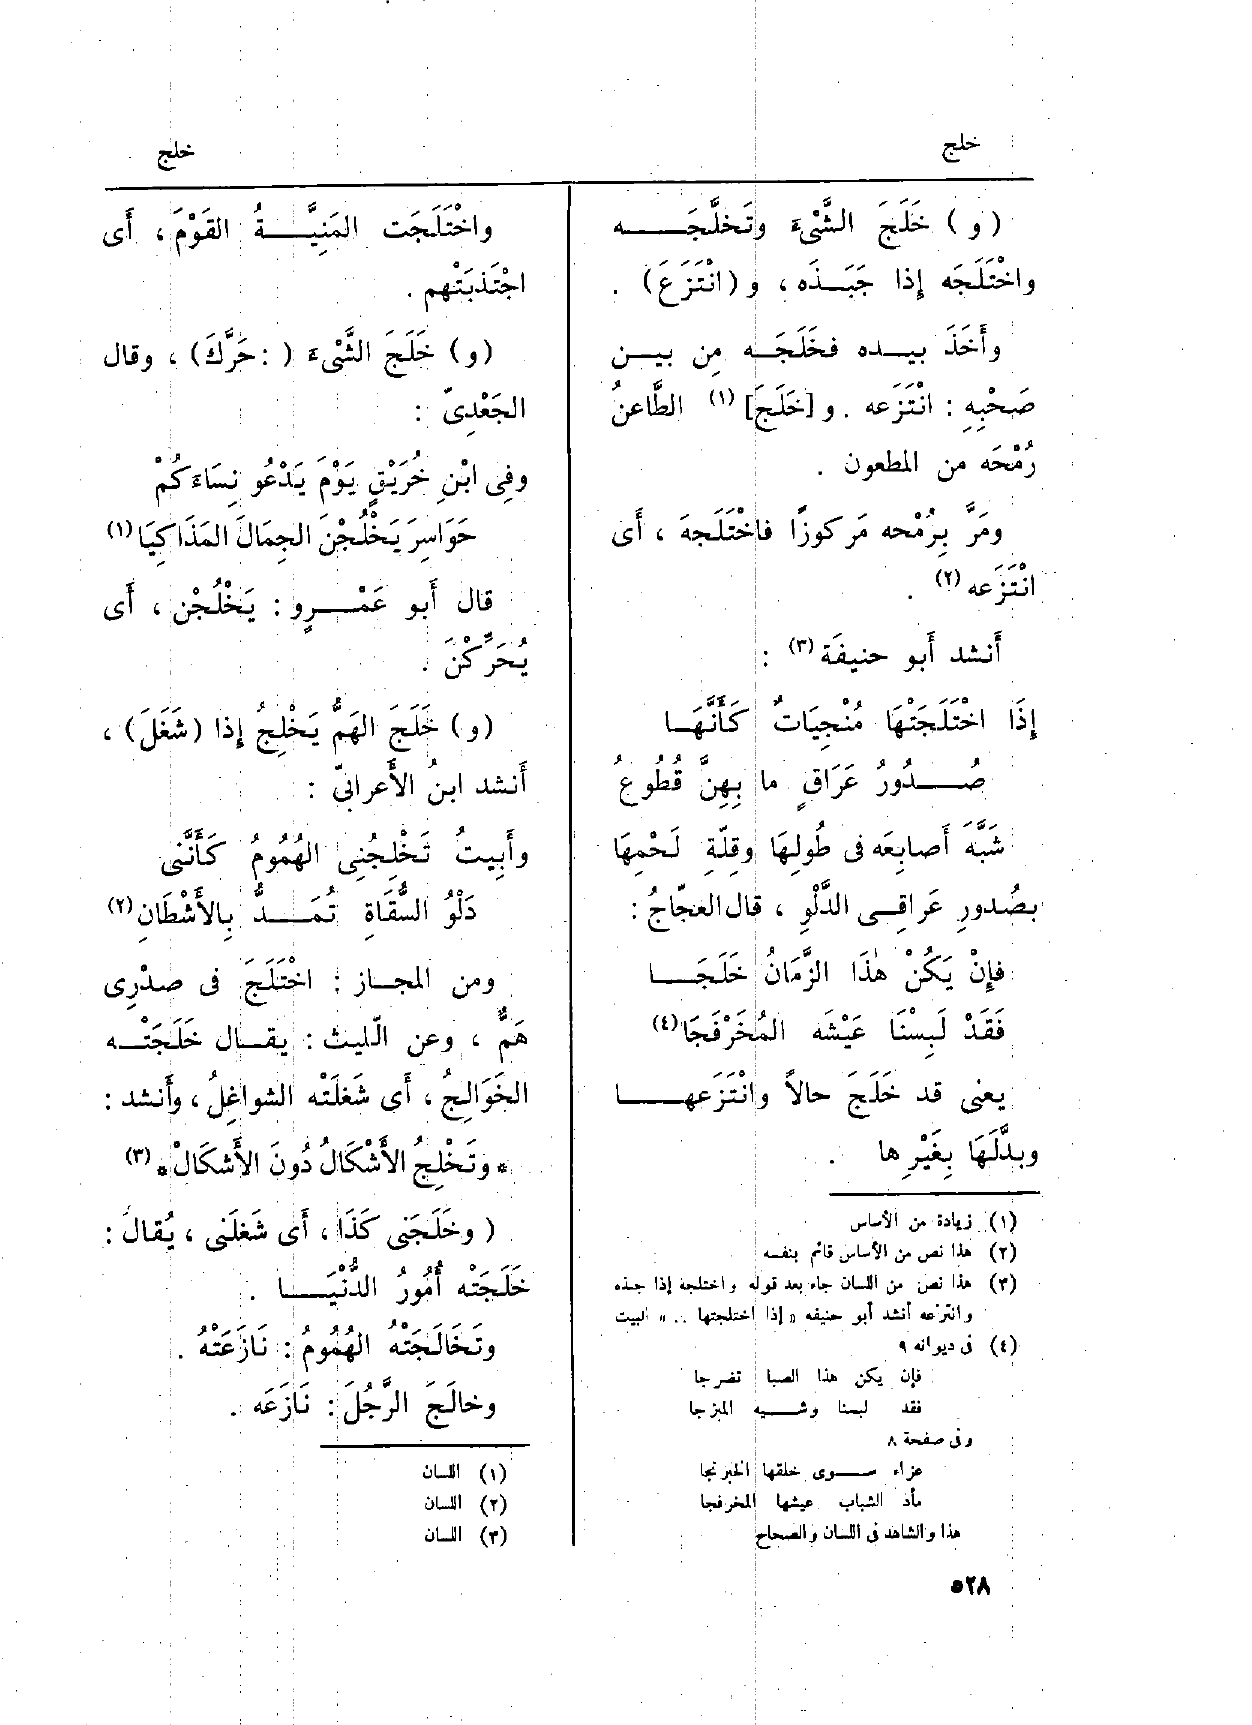 خلج
خلج
(و) خَلَجَ الشَّىْءَ وتَخلَّجَـــه
واخْتَلَجَه إذا جَبَــذَه ، و (انْتَزَعَ) .
وأَخَذَ بيــده فخَلَجَــه مِن بيــن
صَحْبِهِ : انْتَزَعه . و [خَلَجَ] (١) الطَّاعنُ
رُمْحَه من المطعون .
ومَرَّ بِرُمْحه مَركوزًا فاخْتَلَجهَ ، أَى
انْتَزعه (٢) .
أنشد أَبو حنيفَة (٣) :
إِذَا اخْتَلَجَتْهَا مُنْجِيَاتٌ كَأَنَّهَـا
صُــدُورُ عَرَاقٍ ما بِهِنَّ قُطُوعُ
شبَّهَ أَصابِعَه فى طُولِهَا وقِلَّةِ لَحْمِهَا
بصُدورِ عَراقِــى الدَّلْوِ ، قال العجّاجُ :
فإِنْ يَكُنْ هٰذَا الزَّمَانُ خَلَجَــا
فَقَدْ لَبِسْنَا عَيْشه المُخَرْفَجَا (٤)
يعنى قد خَلَجَ حالاً وانْتَزَعهــا
وبدَّلَهَا بِغَيْرِها .
(١) زيادة من الأساس
(٢) هذا نص من الأساس قائم بنفسه
(٣) هذا نص من اللسان جاء بعد قوله واختلجه إذا جبذه
وانتزعه أنشد أبو حنيفه « إذا اختلجتها .. » البيت
(٤) فى ديوانه ٩
فإن يكن هذا الصبا تضرجا
فقد لبسنا وشــيه المبزجا
وفى صفحة ٨
عزاء ســوى خلقها الخبرنجا
مأد الشباب عيشها المخرفجا
هذا والشاهد فى اللسان والصحاح
٥٢٨
واخْتَلَجَت المَنِيَّـــةُ القَوْمَ ، أَى
اجْتَذبَتْهم .
(و) خَلَجَ الشَّىْءَ (: حَرَّكَ) ، وقال
الجَعْدىّ :
وفِى ابْنِ خُرَيْقٍ يَوْمَ يَدْعُو نِسَاءَكُمْ
حَوَاسِرَ يَخْلُجْنَ الجِمَالَ المَذَاكِيَا (١)
قال أَبو عَمْـــرٍو : يَخْلُجْن ، أَى
يُحَرِّكْنَ .
(و) خَلَجَ الهَمُّ يَخْلِجُ إذا (شَغَلَ) ،
أَنشد ابنُ الأَعرابىّ :
وأَبِيتُ تَخْلِجُنِى الهُمُومُ كَأَنَّنى
دَلْوُ السُّقَاةِ تُمَــدُّ بِالأَشْطَانِ (٢)
ومن المجــاز : اخْتَلَجَ فى صدْرِى
هَمٌّ ، وعن الّليث : يقــال خَلَجَتْــه
الخَوَالِجُ ، أَى شَغلَتْه الشواغِلُ ، وأَنشد :
* وتَخْلِجُ الأَشْكَالُ دُونَ الأَشكَالْ * (٣)
( وخَلَجَنى كَذَا ، أَى شَغلَنى ، يُقالُ :
خَلَجَتْه أُمُورُ الدُّنْيَــا .
وتَخَالَجَتْه الهُمُومُ : نَازَعَتْهُ .
وخالَجَ الرَّجُلَ : نَازَعَه .
(١) اللسان
(٢) اللسان
(٣) اللسان